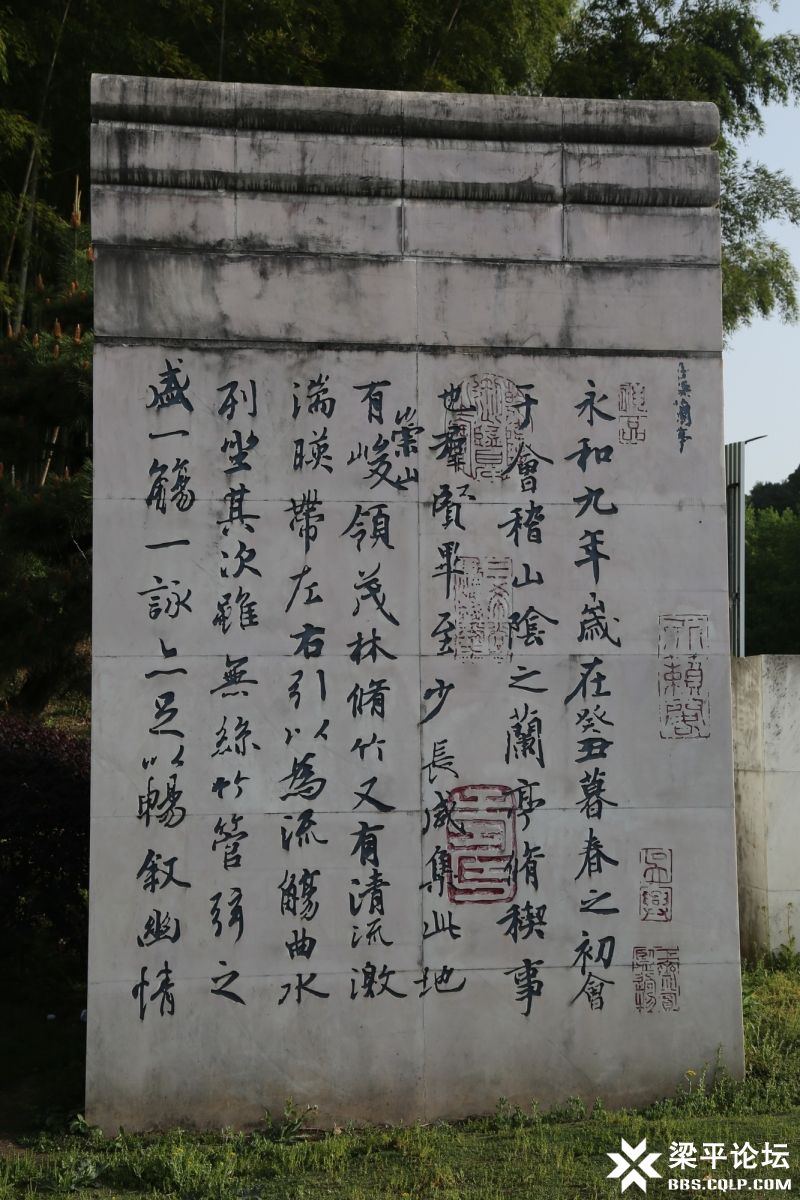 永和九年歲在癸丑暮春之初會
于會稽山陰之蘭亭脩稧事
也羣賢畢至少長咸集此地
有崇山峻領茂林脩竹又有清流激
湍暎帶左右引以為流觴曲水
列坐其次雖無絲竹管弦之
盛一觴一詠亦足以暢敘幽情
梁平论坛
BBS.CQLP.COM